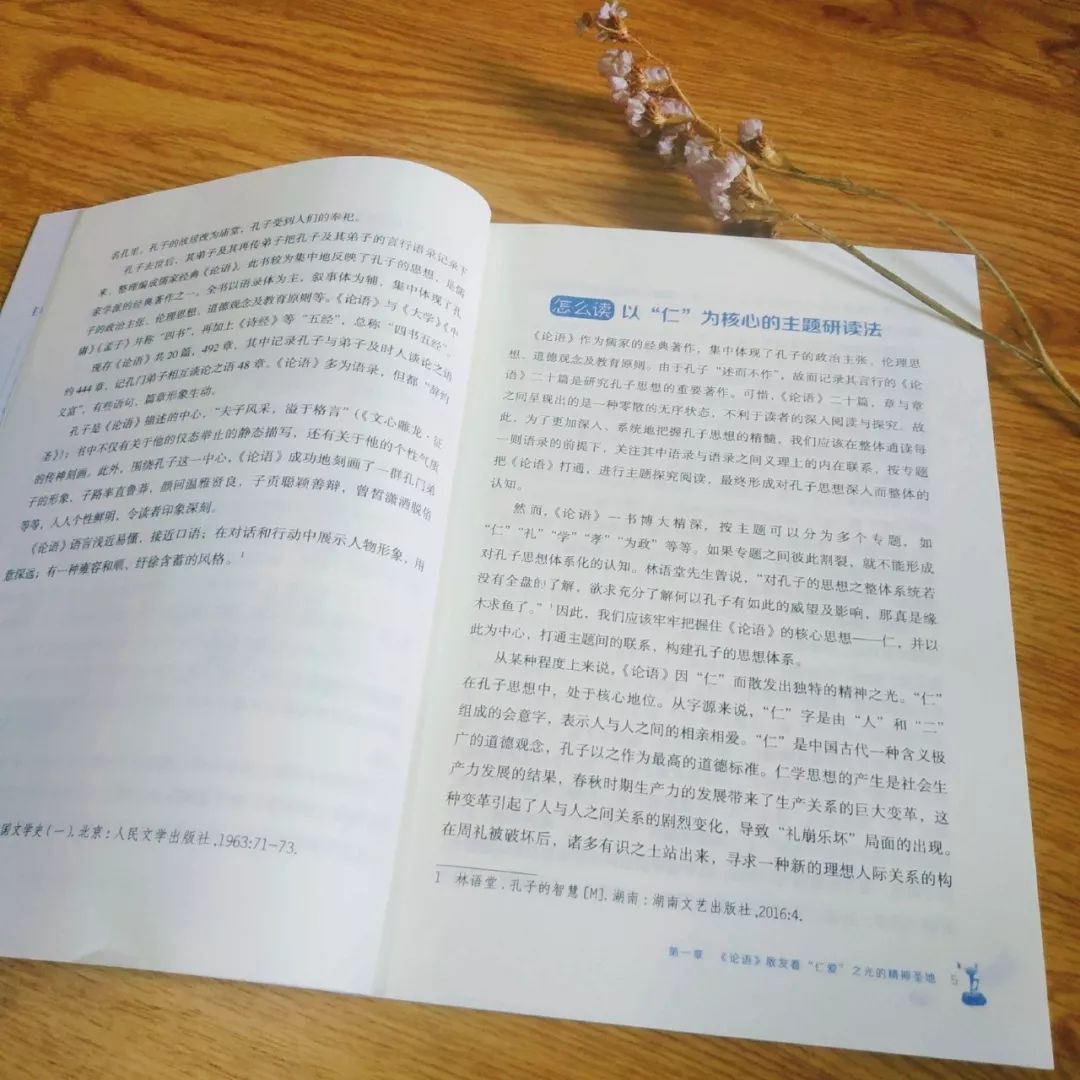 名孔里，孔子的故居改为庙堂，孔子受到人们的奉祀。
孔子去世后，其弟子及其再传弟子把孔子及其弟子的言行语录记录下
来，整理编成儒家经典《论语》。此书较为集中地反映了孔子的思想，是儒
家学派的经典著作之一。全书以语录体为主，叙事体为辅，集中体现了孔
子的政治主张、伦理思想、道德观念及教育原则等。《论语》与《大学》《中
庸》《孟子》并称“四书”，再加上《诗经》等“五经”，总称“四书五经”。
现存《论语》共20篇，492章，其中记录孔子与弟子及时人谈论之语
约444章，记孔门弟子相互谈论之语48章。《论语》多为语录，但都“辞约
义富”，有些语句、篇章形象生动。
孔子是《论语》描述的中心，“夫子风采，溢于格言”（《文心雕龙·征
圣》）；书中不仅有关于他的仪态举止的静态描写，还有关于他的个性气质
的传神刻画。此外，围绕孔子这一中心，《论语》成功地刻画了一群孔门弟
子的形象，子路率直鲁莽，颜回温雅贤良，子贡聪颖善辩，曾皙潇洒脱俗
等等，人人个性鲜明，令读者印象深刻。
《论语》语言浅近易懂，接近口语；在对话和行动中展示人物形象，用
意深远；有一种雍容和顺、纡徐含蓄的风格。1
国文学史(一).北京：人民文学出版社,1963:71-73.
怎么读 以“仁”为核心的主题研读法
《论语》作为儒家的经典著作，集中体现了孔子的政治主张、伦理思
想、道德观念及教育原则。由于孔子“述而不作”，故而记录其言行的《论
语》二十篇是研究孔子思想的重要著作。可惜，《论语》二十篇，章与章
之间呈现出的是一种零散的无序状态，不利于读者的深入阅读与探究。故
此，为了更加深入、系统地把握孔子思想的精髓，我们应该在整体通读每
一则语录的前提下，关注其中语录与语录之间义理上的内在联系，按专题
把《论语》打通，进行主题探究阅读，最终形成对孔子思想深入而整体的
认知。
然而，《论语》一书博大精深，按主题可以分为多个专题，如
“仁”“礼”“学”“孝”“为政”等等。如果专题之间彼此割裂，就不能形成
对孔子思想体系化的认知。林语堂先生曾说，“对孔子的思想之整体系统若
没有全盘的了解，欲求充分了解何以孔子有如此的威望及影响，那真是缘
木求鱼了。”1因此，我们应该牢牢把握住《论语》的核心思想——仁，并以
此为中心，打通主题间的联系，构建孔子的思想体系。
从某种程度上来说，《论语》因“仁”而散发出独特的精神之光。“仁”
在孔子思想中，处于核心地位。从字源来说，“仁”字是由“人”和“二”
组成的会意字，表示人与人之间的相亲相爱。“仁”是中国古代一种含义极
广的道德观念，孔子以之作为最高的道德标准。仁学思想的产生是社会生
产力发展的结果，春秋时期生产力的发展带来了生产关系的巨大变革，这
种变革引起了人与人之间关系的剧烈变化，导致“礼崩乐坏”局面的出现。
在周礼被破坏后，诸多有识之士站出来，寻求一种新的理想人际关系的构
1 林语堂.孔子的智慧[M].湖南：湖南文艺出版社,2016:4.
第一章 《论语》散发着“仁爱”之光的精神圣地 5